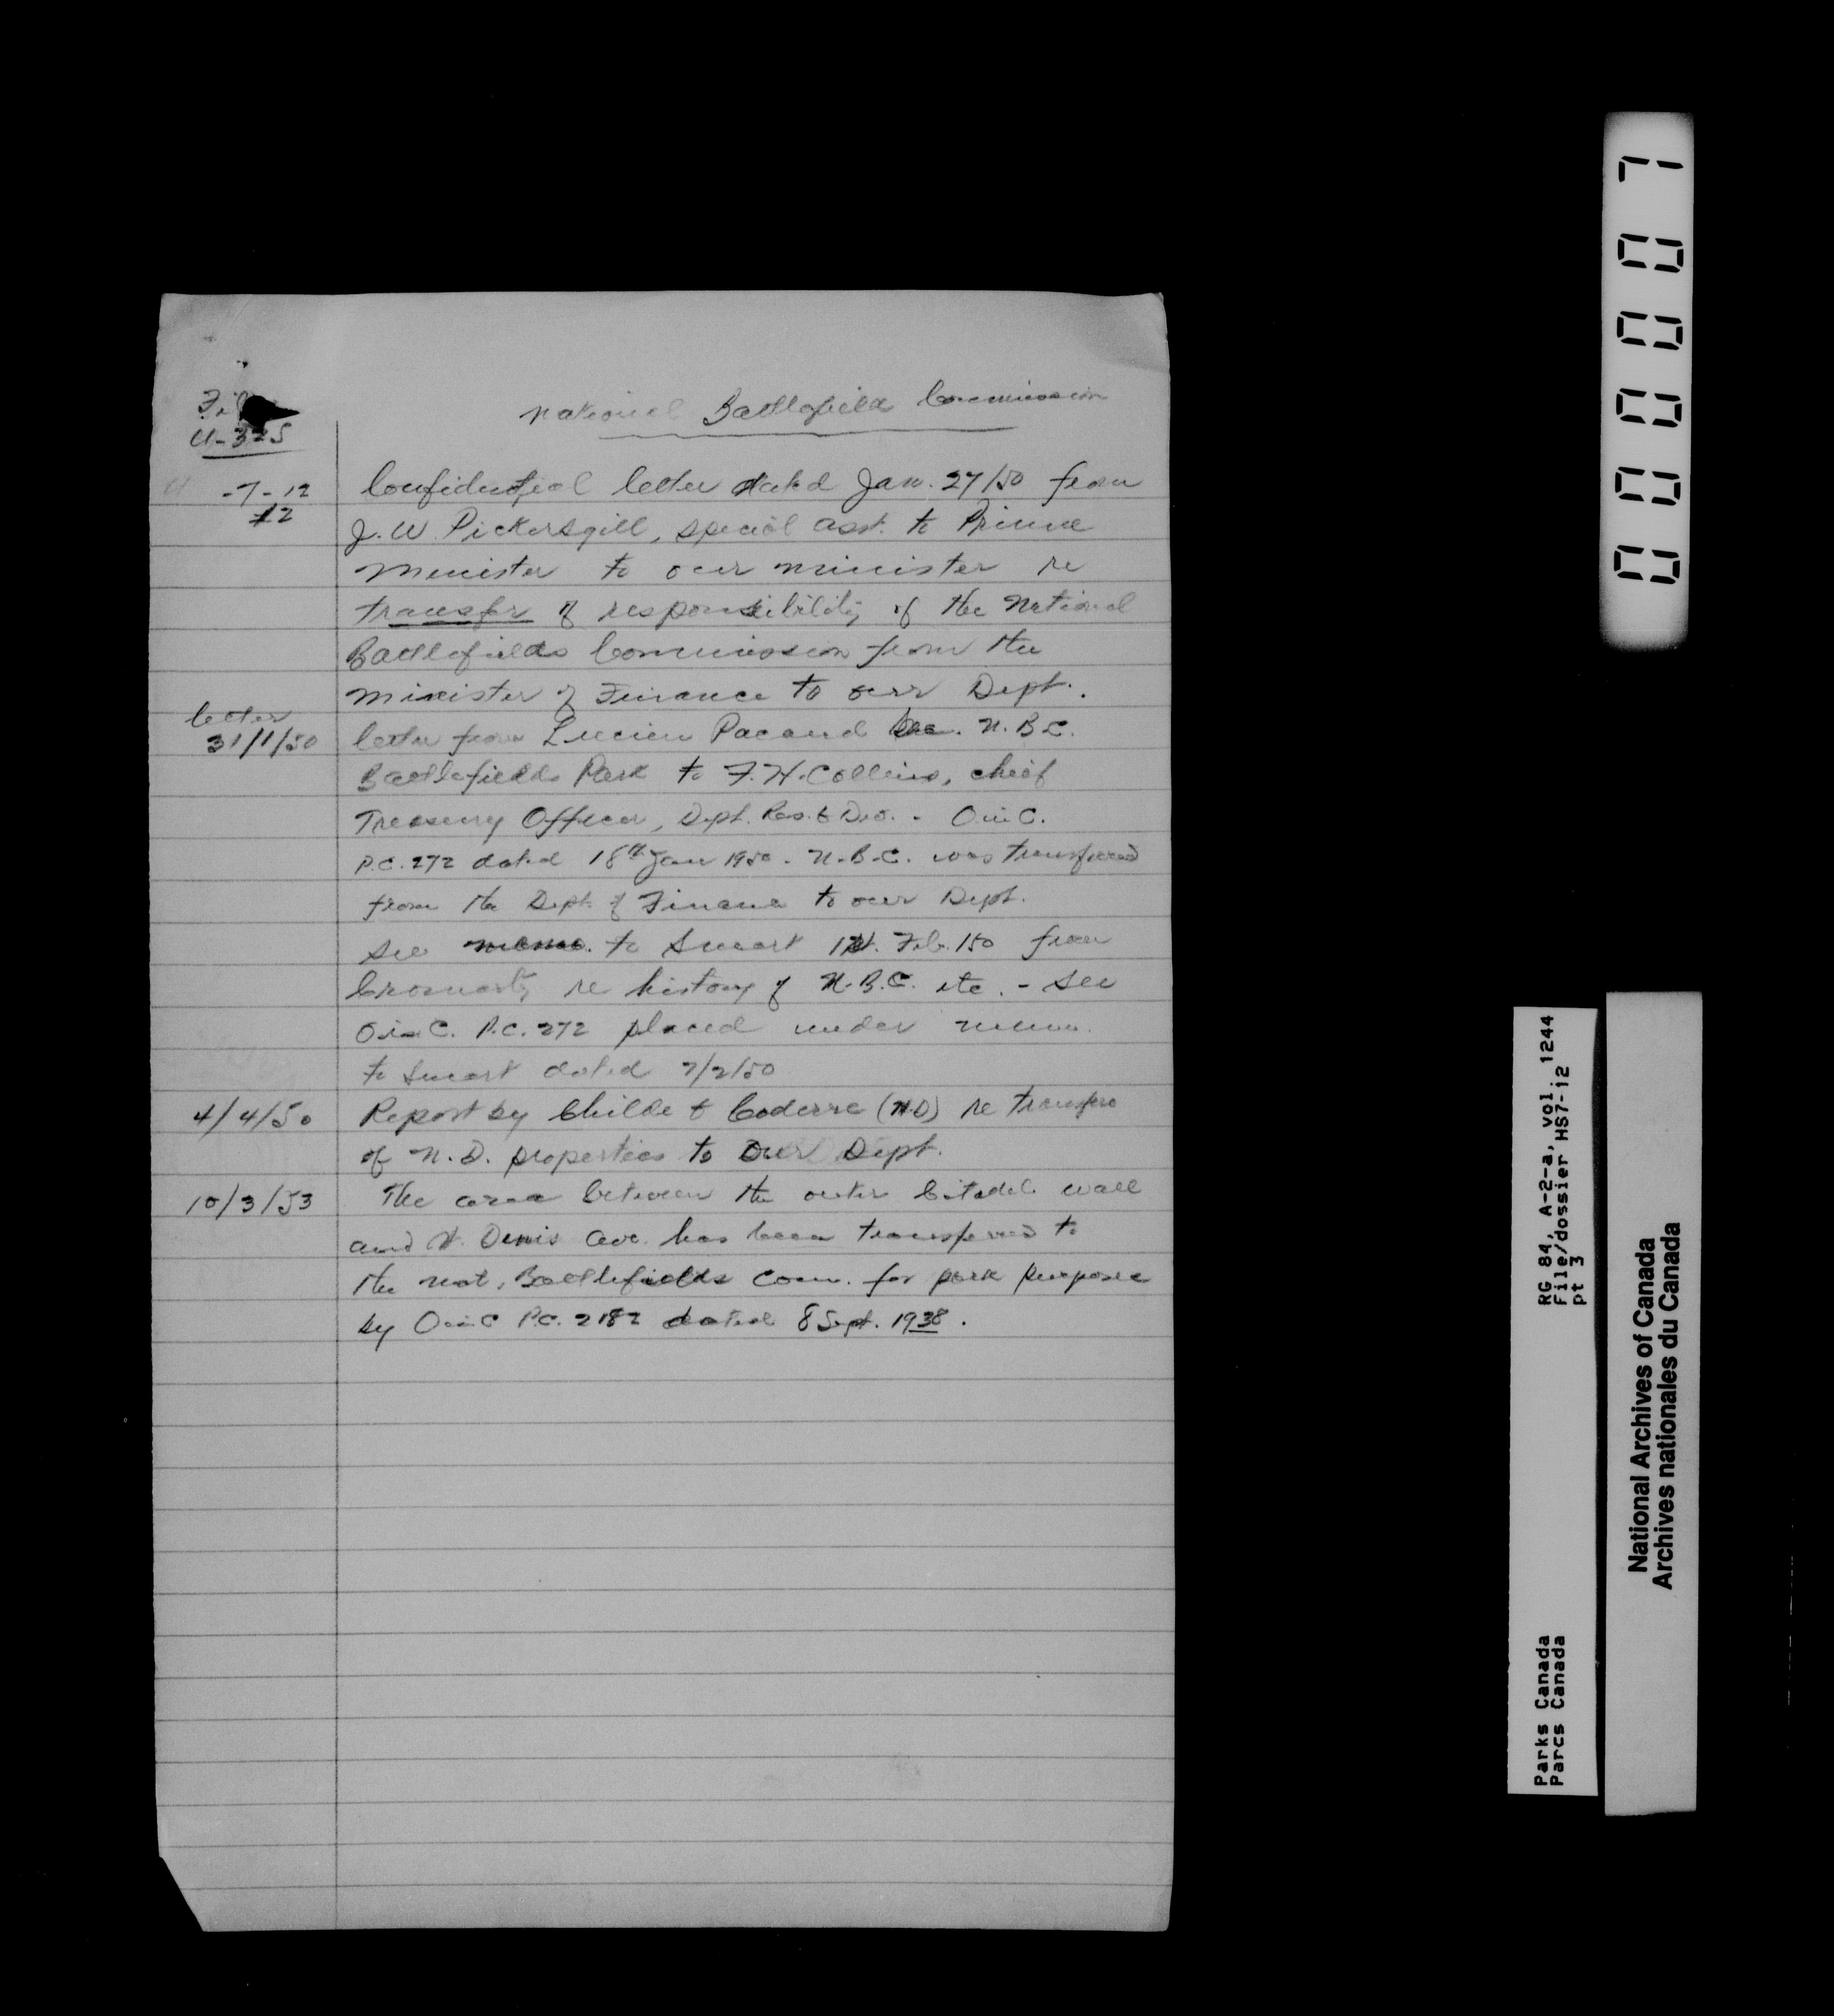 National Battlefields Commission
File
U-325
-7-12
#2
Confidential letter dated Jan. 27/50 from
J. W. Pickersgill, special asst. to Prime
Minister to our minister re
transfer of responsibility of the National
Battlefields Commission from the
Minister of Finance to our Dept.
letter
31/1/50
letter from Lucien Pacaud Sec. N.B.C.
Battlefields Park to F. H. Collins, chief
Treasury Officer, Dept. Res. & Dev. - O in C.
P.C. 272 dated 18th Jan 1950. N.B.C. was transferred
from the Dept. of Finance to our Dept.
see memo. to Smart Feb. /50 from
Cromarty re history of N.B.C. etc. - see
O in C. P.C. 272 placed under memo.
to Smart dated 7/2/50
4/4/50
Report by Childe & Coderre (N.D) re transfers
of N.D. properties to our Dept.
10/3/53
The area between the outer Citadel wall
and St. Denis Ave. has been transferred to
the Nat. Battlefields Com. for park purposes
by O in C P.C. 2182 dated 8 Sept. 1938.
000007
RG 84, A-2-a, vol. 1244
File/dossier HS7-12
pt 3
Parks Canada
Parcs Canada
National Archives of Canada
Archives nationales du Canada